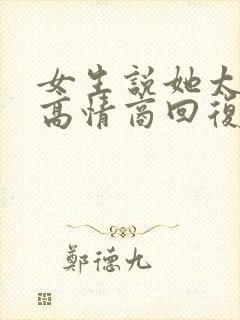 女生説她太
高情商回復
鄭德九